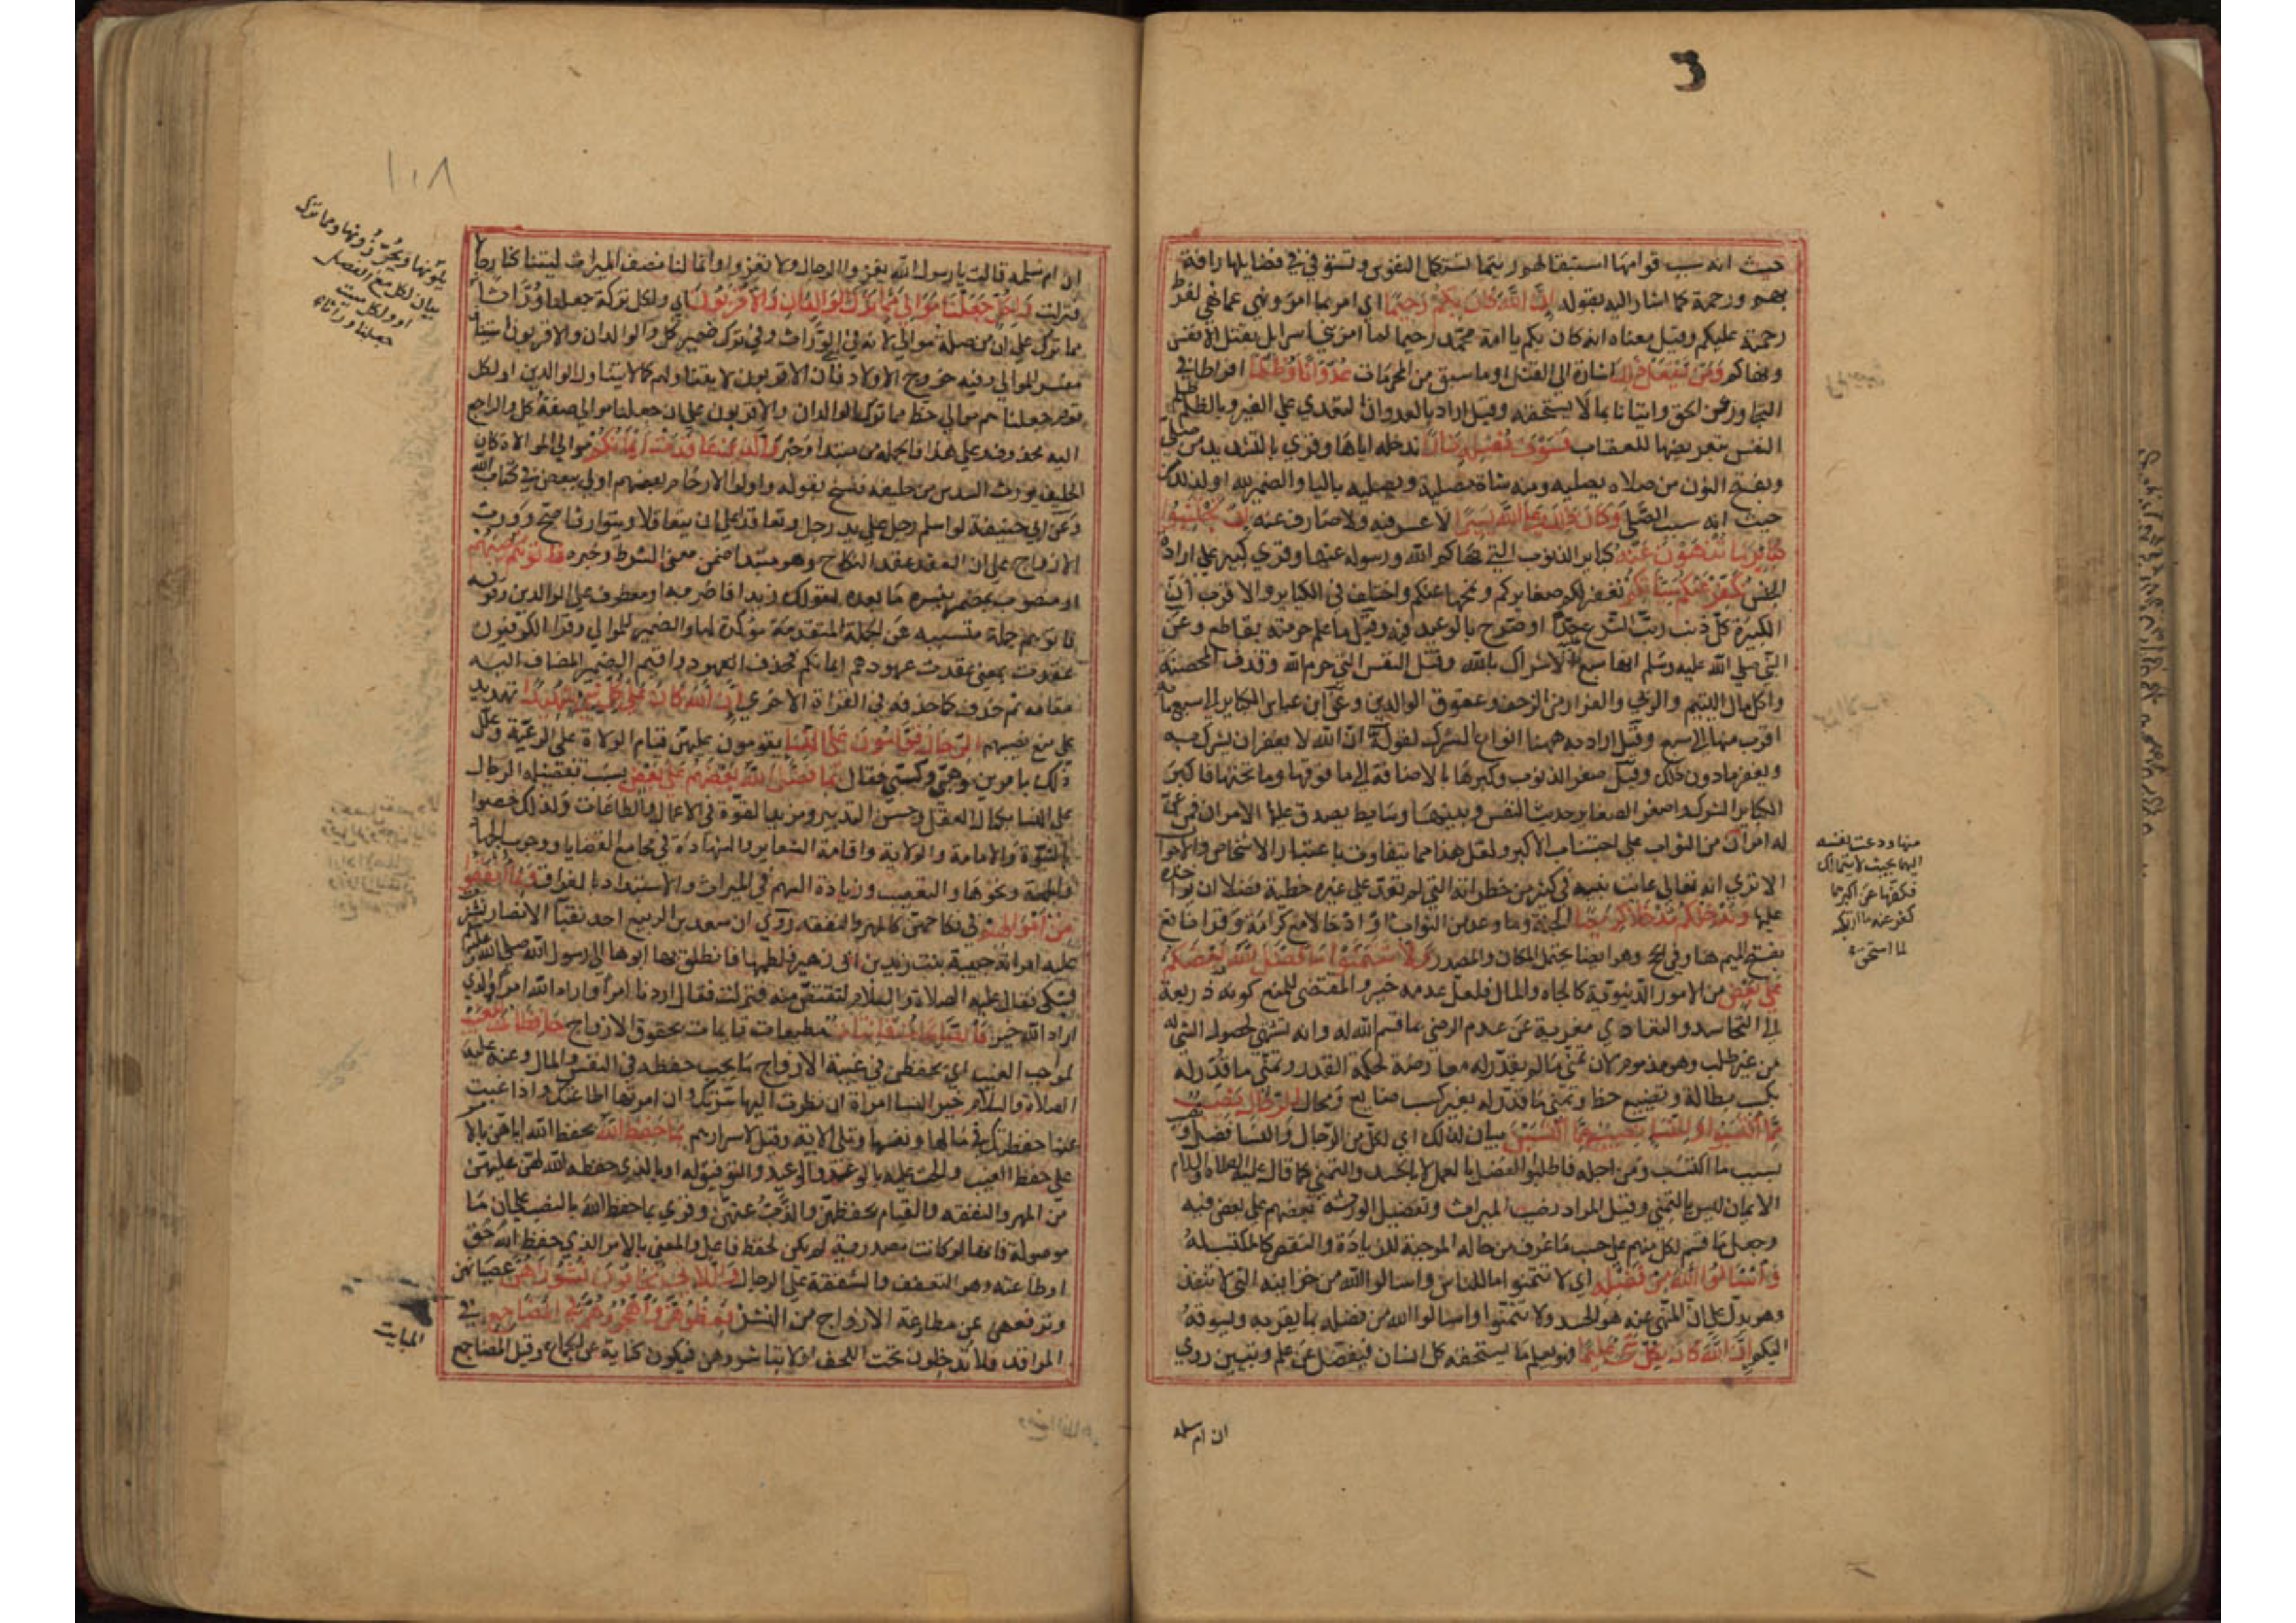 حيث انه سبب قوامها استبقا لهم ريثما تستكمل النفوس وتستوفي فضايلها رافة
بهم ورحمة كما اشار اليه بقوله إن الله كان بكم رحيما اي امر بما امر ونهى عما نهى لفرط
رحمته عليكم وقيل معناه انه كان بكم يا امة محمد رحيما لما امر بني اسرايل بقتل الانفس
ونهاكم ومن يفعل ذلك اشارة الى القتل او ما سبق من المحرمات عدوانا وظلما افراطا في
التجاوز عن الحق واتيانا بما لا يستحقه وقيل اراد بالعدوان التعدي على الغير وبالظلم ظلم
النفس بتعريضها للعقاب فسوف نصليه نارا ندخله اياها وقري بالتشديد من صلى
وبفتح النون من صلاه يصليه ومنه شاة مصلية ويصليه باليا والضمير لله او لذلك
حيث انه سبب الصلي وكان ذلك على الله يسيرا لا عسر فيه ولا صارف عنه إن تجتنبوا
كباير ما تنهون عنه كباير الذنوب التي نهاكم الله ورسوله عنها وقري كبير على ارادة
الجنس نكفر عنكم سيئاتكم نغفر لكم صغايركم ونمحها عنكم واختلف في الكباير والاقرب ان
الكبيرة كل ذنب رتب الشرع عليه حدا او صرح بالوعيد فيه وقيل ما علم حرمته بقاطع وعن
النبي صلى الله عليه وسلم انها سبع الاشراك بالله وقتل النفس التي حرم الله وقذف المحصنة
واكل مال اليتيم والربي والفرار من الزحف وعقوق الوالدين وعن ابن عباس الكباير الى سبع ماية
اقرب منها الى سبع وقيل اراد به ههنا انواع الشرك لقوله ان الله لا يغفر ان يشرك به
ويغفر ما دون ذلك وقيل صغر الذنوب وكبرها بالاضافة الى ما فوقها وما تحتها فاكبر
الكباير الشرك واصغر الصغاير حديث النفس وبينهما وسايط يصدق عليها الامران فمن عن
له امران
منها ودعت نفسه
اليها بحيث لا يتمالك
فكفها عن اكبرهما
كفر عنه ما ارتكبه
لما استحق
من الثواب على اجتناب الاكبر ولعل هذا مما يتفاوت باعتبار الاشخاص والاحوال
الا ترى انه تعالى عاتب نبيه في كثير من خطراته التي لم تعد على غيره خطية فضلا ان يواخذه
عليها وندخلكم مدخلا كريما الجنة وما وعد من الثواب او ادخالا مع كرامة وقرا نافع
بفتح الميم هنا وفي الحج وهو ايضا يحتمل المكان والمصدر ولا تتمنوا ما فضل الله به بعضكم
على بعض من الامور الدنيوية كالجاه والمال فلعل عدمه خير والمقتضي للمنع كونه ذريعة
الى التحاسد والتعادي معربة عن عدم الرضى بما قسم الله له وانه تشهي لحصول الشي له
من غير طلب وهو مذموم لان تمني ما لم يقدر له معارضة لحكمة القدر وتمني ما قدر له
بكسب بطالة وتضييع حظ وتمني ما قدر له بغير كسب ضايع ومحال للرجال نصيب
مما اكتسبوا وللنسا نصيب مما اكتسبن بيان لذلك اي لكل من الرجال والنسا فضل ونصيب
بسبب ما اكتسب ومن اجله فاطلبوا الفضل بالعمل لا بالحسد والتمني كما قال عليه الصلاة والسلام
الايمان ليس بالتمني وقيل المراد نصيب الميراث وتفضيل الورثة بعضهم على بعض فيه
وجعل ما قسم لكل منهم على حسب ما عرف من حاله الموجبة للزيادة والنقص كالمكتسب له
واسئلوا الله من فضله اي لا تتمنوا ما للناس واسالوا الله من خزاينه التي لا تنفد
وهو يدل على ان المنهي عنه هو الحسد ولا تتمنوا واسالوا الله من فضله بما يقربه ويسوقه
اليكم إن الله كان بكل شيء عليما فهو يعلم ما يستحقه كل انسان فيفضل عن علم وتبيين روي
ان ام سلمة
١٠٨
ان ام سلمة قالت يا رسول الله يغزوا الرجال ولا نغزوا وانما لنا نصف الميراث ليتنا كنا رجالا
فنزلت ولكل جعلنا موالي مما ترك الوالدان والأقربون اي ولكل تركة جعلنا وراثا
يلونها ويحرزونها ومما ترك
بيان لكل مع الفصل
او ولكل ميت
جعلنا وراثا
مما ترك على ان من صلة موالي لانه في الوراث وفي ترك ضمير كل والوالدان والاقربون استيناف
مفسر للموالي وفيه خروج الاولاد فان الاقربون لا يتناولهم كما لا يتناول الوالدين او لكل
قوم جعلناهم موالي حظ مما ترك الوالدان والاقربون على ان جعلنا موالي صفة كل والراجع
اليه محذوف وعلى هذا فالجملة من مبتدا وخبر والذين عاقدت أيمانكم موالي الموالاة كان
الحليف يورث السدس من حليفه فنسخ بقوله واولوا الارحام بعضهم اولى ببعض في كتاب الله
وعن ابي حنيفة لو اسلم رجل على يد رجل وتعاقدا على ان يتعاقلا ويتوارثا صح وورث
الازواج على ان العقد عقد النكاح وهو مبتدا ضمن معنى الشرط وخبره فآتوهم نصيبهم
او منصوب بمضمر يفسره ما بعده كقولك زيدا فاضربه او معطوف على الوالدين وقوله
فاتوهم جملة متسببة عن الجملة المتقدمة مؤكدة لها والضمير للموالي وقرا الكوفيون
عقدت بمعنى عقدت عهودهم ايمانكم فحذف العهود واقيم الضمير المضاف اليه
مقامه ثم حذف كما حذفه في القراة الاخرى إن الله كان على كل شيء شهيدا تهديد
على منع نصيبهم الرجال قوامون على النسا يقومون عليهن قيام الولاة على الرعية وعلل
ذلك بامرين وهبي وكسبي فقال بما فضل الله بعضهم على بعض بسبب تفضيله الرجال
على النسا بكمال العقل وحسن التدبير ومزيد القوة في الاعمال والطاعات ولذلك خصوا
بالنبوة والامامة والولاية واقامة الشعاير والشهادة في مجامع القضايا ووجوب الجهاد
والجمعة ونحوها والتعصيب وزيادة السهم في الميراث والاستبداد بالفراق وبما أنفقوا
من أموالهم في نكاحهن كالمهر والنفقة روي ان سعد بن الربيع احد نقبا الانصار نشزت
عليه امراته حبيبة بنت زيد بن ابي زهير فلطمها فانطلق بها ابوها الى رسول الله صلى الله عليه
فشكى فقال عليه الصلاة والسلام لتقتص منه فنزلت فقال اردنا امرا واراد الله امرا والذي
اراد الله خير فالصالحات قانتات مطيعات قايمات بحقوق الازواج حافظات للغيب
لمواجب الغيب اي يحفظن في غيبة الازواج ما يجب حفظه في النفس والمال وعنه عليه
الصلاة والسلام خير النسا امراة ان نظرت اليها سرتك وان امرتها اطاعتك واذا غبت
عنها حفظتك في مالها ونفسها وتلى الاية وقيل لاسرارهم بما حفظ الله بحفظ الله اياهن بالامر
على حفظ الغيب والحث عليه بالوعد والوعيد والتوفيق له او بالذي حفظه الله لهن عليهن
من المهر والنفقه والقيام بحفظهن والذب عنهن وقري بما حفظ الله بالنصب على ان ما
موصولة فانها لو كانت مصدرية لم يكن لحفظ فاعل والمعنى بالامر الذي حفظ الله حق
او طاعته وهو التعفف والشفقة على الرجال واللاتي تخافون نشوزهن عصيانهن
وترفعهن عن مطاوعة الازواج من النشز فعظوهن واهجروهن في المضاجع في
المراقد فلا تدخلون تحت اللحف او لا تباشروهن فيكون كناية عن الجماع وقيل المضاجع
المبايت